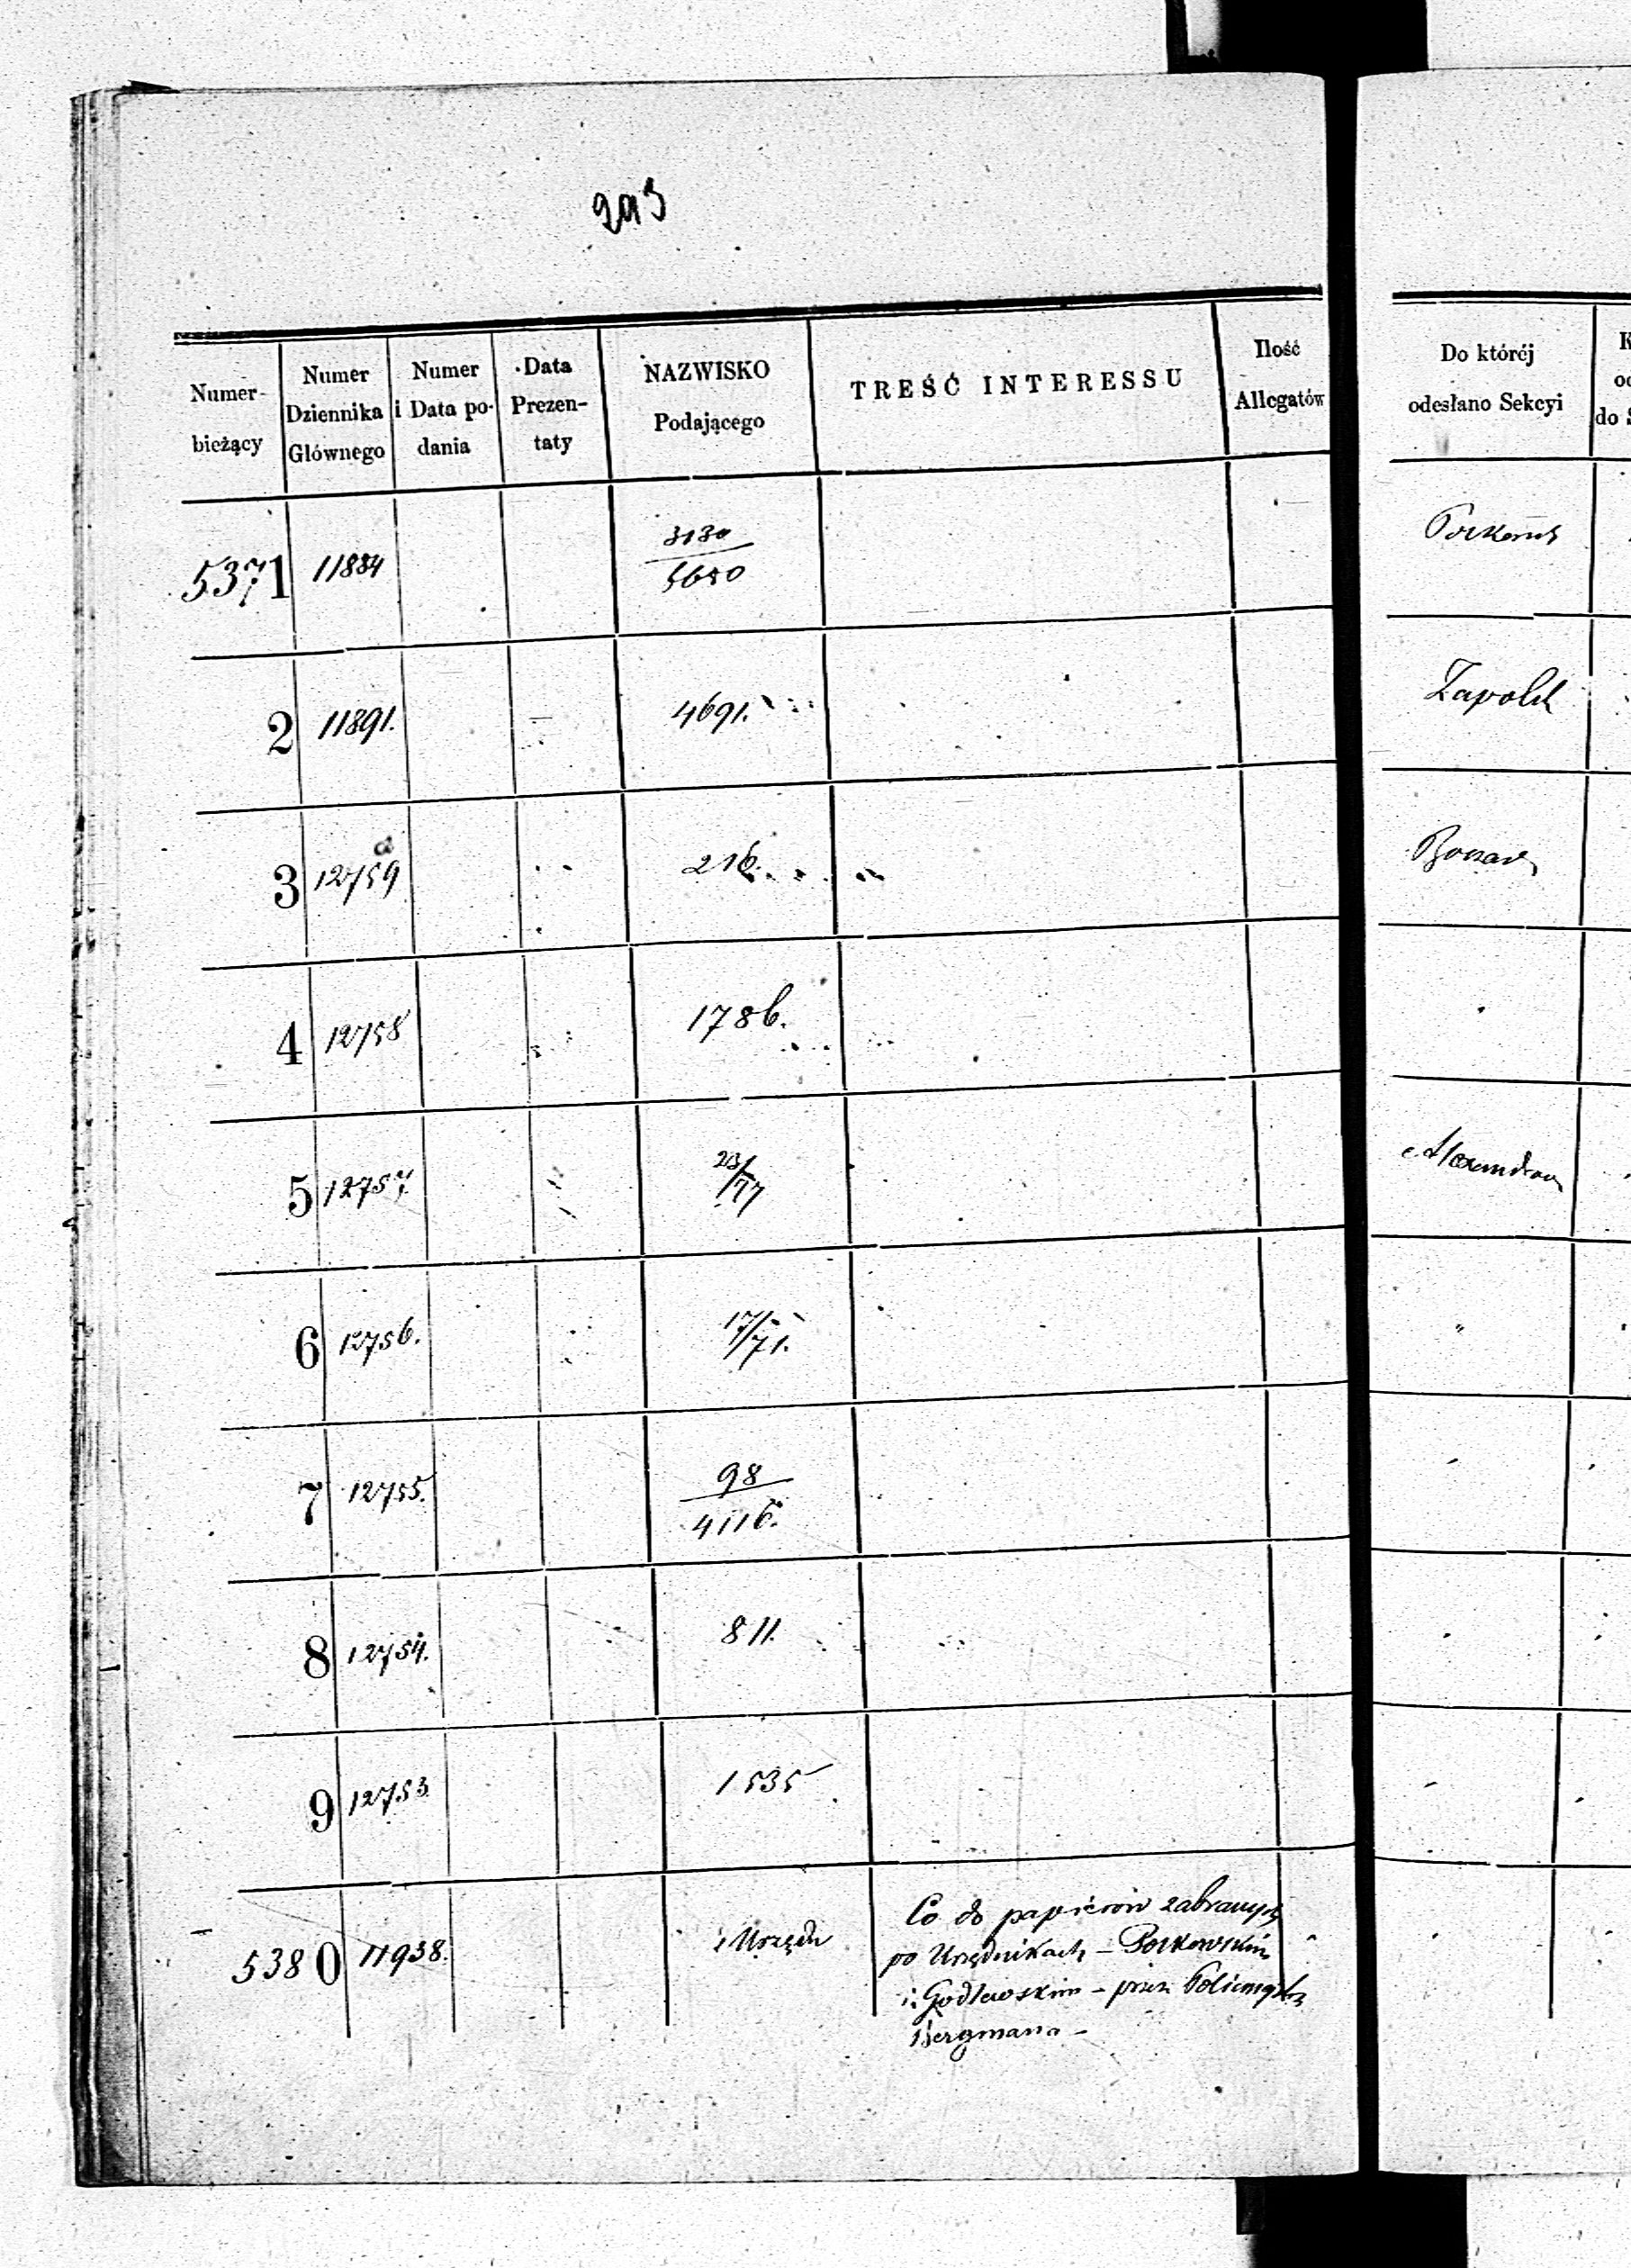 Numer bieżący | Numer Dziennika Głównego | Numer i Data podania | Data Prezentaty | NAZWISKO Podającego | TREŚĆ INTERESSU | Ilość Allegatów | Do któréj odesłano Sekcyi
5371 | 11884 | 3130 / 5650
2 | 11891. | 4691. | Zapolsk
3 | 12759 | 216.
4 | 12758 | 1786.
5 | 12757 | 23/77
6 | 12756. | 17/71.
7 | 12755. | 98 / 4116.
8 | 12754. | 811.
9 | 12753 | 1535
5380 | 11938. | z Urzędu | Co do papierów zabranych
po Urzędnikach – Borkowskim
i Godlewskim – przez Policmajstra
Bergmana –